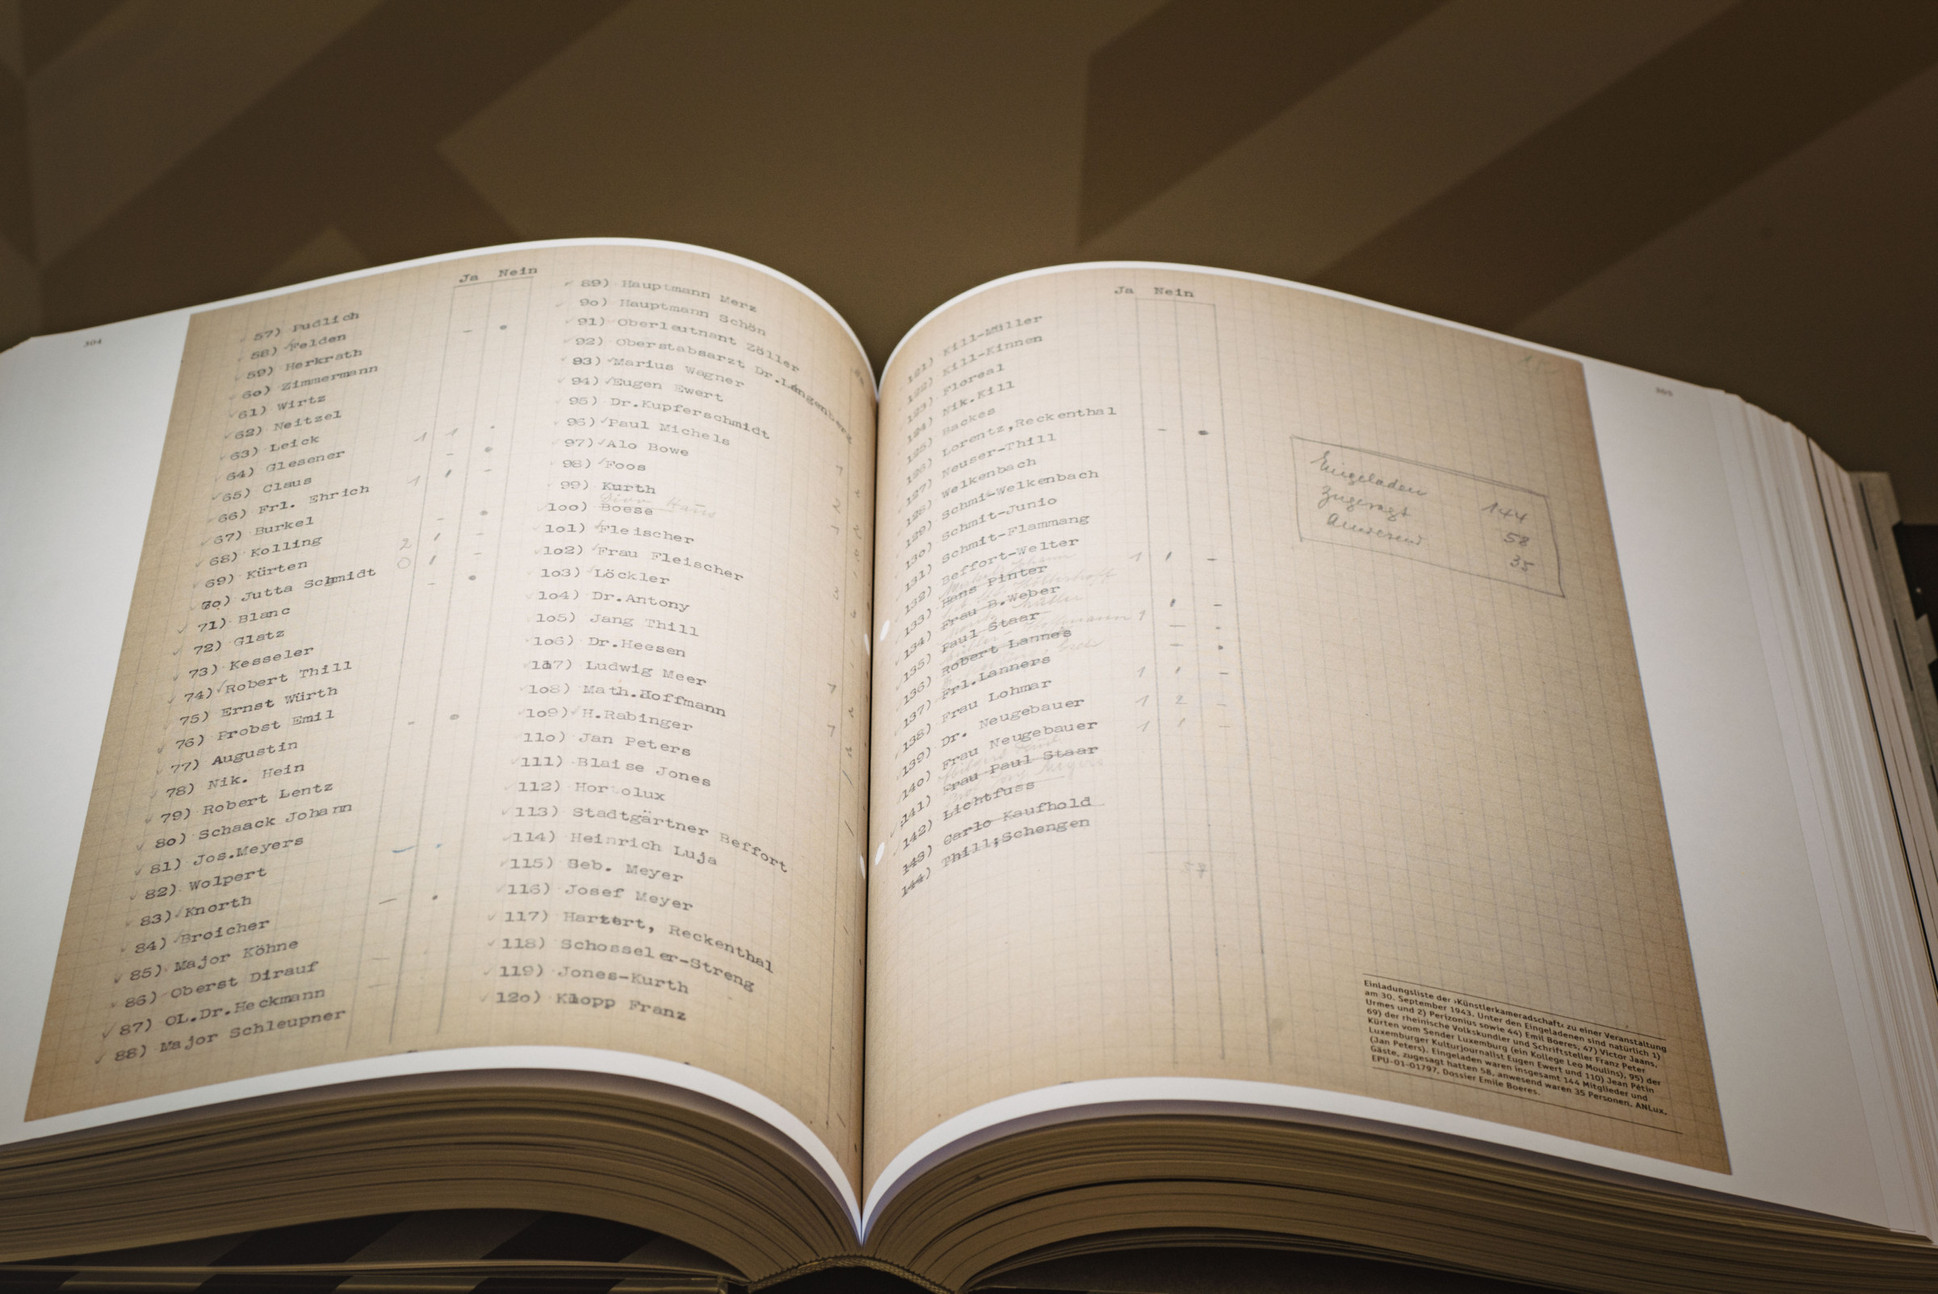 304
Ja Nein
57) Pudlich
58) Felden
59) Herkrath
60) Zimmermann
61) Wirtz
62) Neitzel
63) Leick
64) Glesener
65) Claus
66) Frl. Ehrich
67) Burkel
68) Kolling
69) Kürten
70) Jutta Schmidt
71) Blanc
72) Glatz
73) Kesseler
74) Robert Thill
75) Ernst Würth
76) Probst Emil
77) Augustin
78) Nik. Hein
79) Robert Lentz
80) Schaack Johann
81) Jos.Meyers
82) Wolpert
83) Knorth
84) Broicher
85) Major Köhne
86) Oberst Dirauf
87) OL.Dr.Heckmann
88) Major Schleupner
89) Hauptmann Merz
90) Hauptmann Schön
91) Oberleutnant Zöller
92) Oberstabsarzt Dr.Langenberg
93) Marius Wagner
94) Eugen Ewert
95) Dr.Kupferschmidt
96) Paul Michels
97) Alo Bowe
98) Foos
99) Kurth
100) Boese
101) Fleischer
102) Frau Fleischer
103) Löckler
104) Dr.Antony
105) Jang Thill
106) Dr.Heesen
107) Ludwig Meer
108) Math.Hoffmann
109) H.Rabinger
110) Jan Peters
111) Blaise Jones
112) Hor olux
113) Stadtgärtner Beffort
114) Heinrich Luja
115) Seb. Meyer
116) Josef Meyer
117) Hartert, Reckenthal
118) Schosseler-Streng
119) Jones-Kurth
120) Klopp Franz
305
Ja Nein
121) Kill-Müller
122) Kill-Kinnen
123) Floreal
124) Nik.Kill
125) Backes
126) Lorentz,Reckenthal
127) Neuser-Thill
128) Welkenbach
129) Schmi-Welkenbach
130) Schmit-Junio
131) Schmit-Flammang
132) Beffort-Welter
133) Hans Pinter
134) Frau B.Weber
135) Paul Staar
136) Robert Lannes
137) Frl.Lanners
138) Frau Lohmar
139) Dr. Neugebauer
140) Frau Neugebauer
141) Frau Paul Staar
142) Lichtfuss
143) Carlo Kaufhold
144) Thill,Schengen
Eingeladen 144
Zugesagt 58
Anwesend 35
Einladungsliste der ›Künstlerkameradschaft‹ zu einer Veranstaltung
am 30. September 1943. Unter den Eingeladenen sind natürlich 1)
Urmes und 2) Perizonius sowie 44) Emil Boeres, 47) Victor Jaans,
69) der rheinische Volkskundler und Schriftsteller Franz Peter
Kürten vom Sender Luxemburg (ein Kollege Leo Moulins), 95) der
Luxemburger Kulturjournalist Eugen Ewert und 110) Jean Petin
(Jan Peters). Eingeladen waren insgesamt 144 Mitglieder und
Gäste, zugesagt hatten 58, anwesend waren 35 Personen. ANLux,
EPU-01-01797, Dossier Emile Boeres.